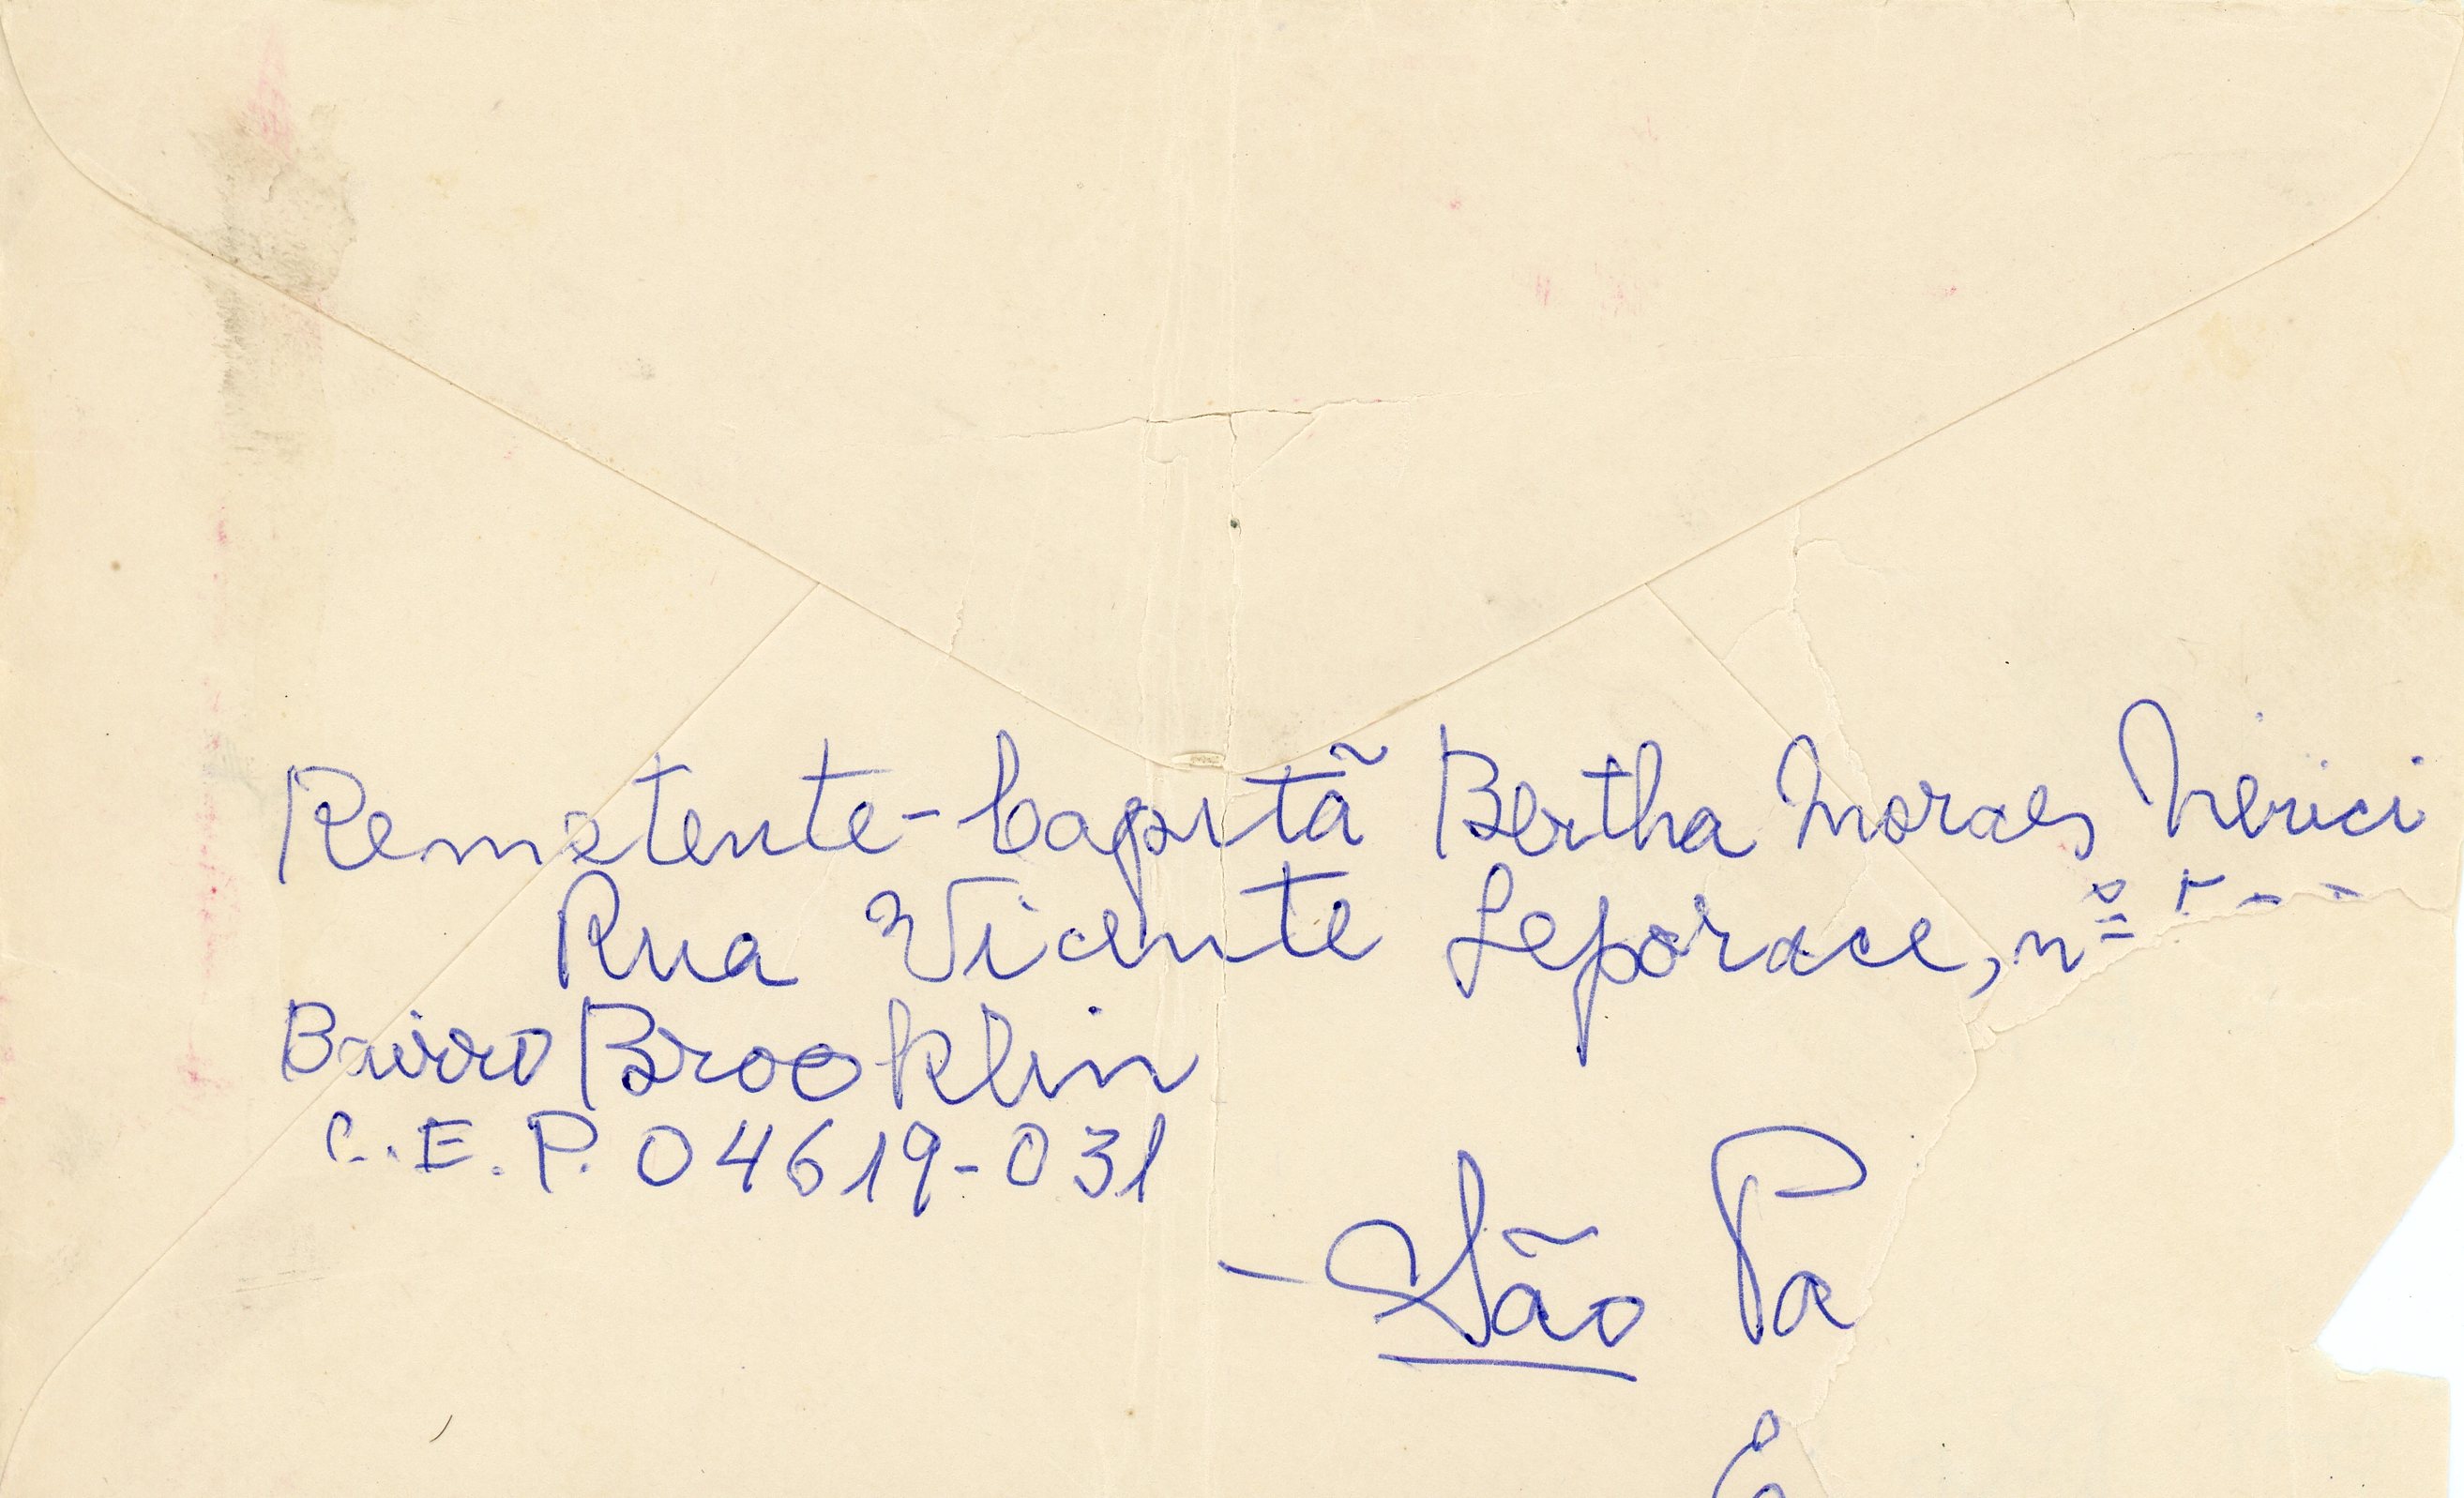 Remetente - Capitã Bertha Moraes Nerici
Rua Vicente Leporace, nº
Bairro Brooklin
C.E.P. 04619-031
- São Pa